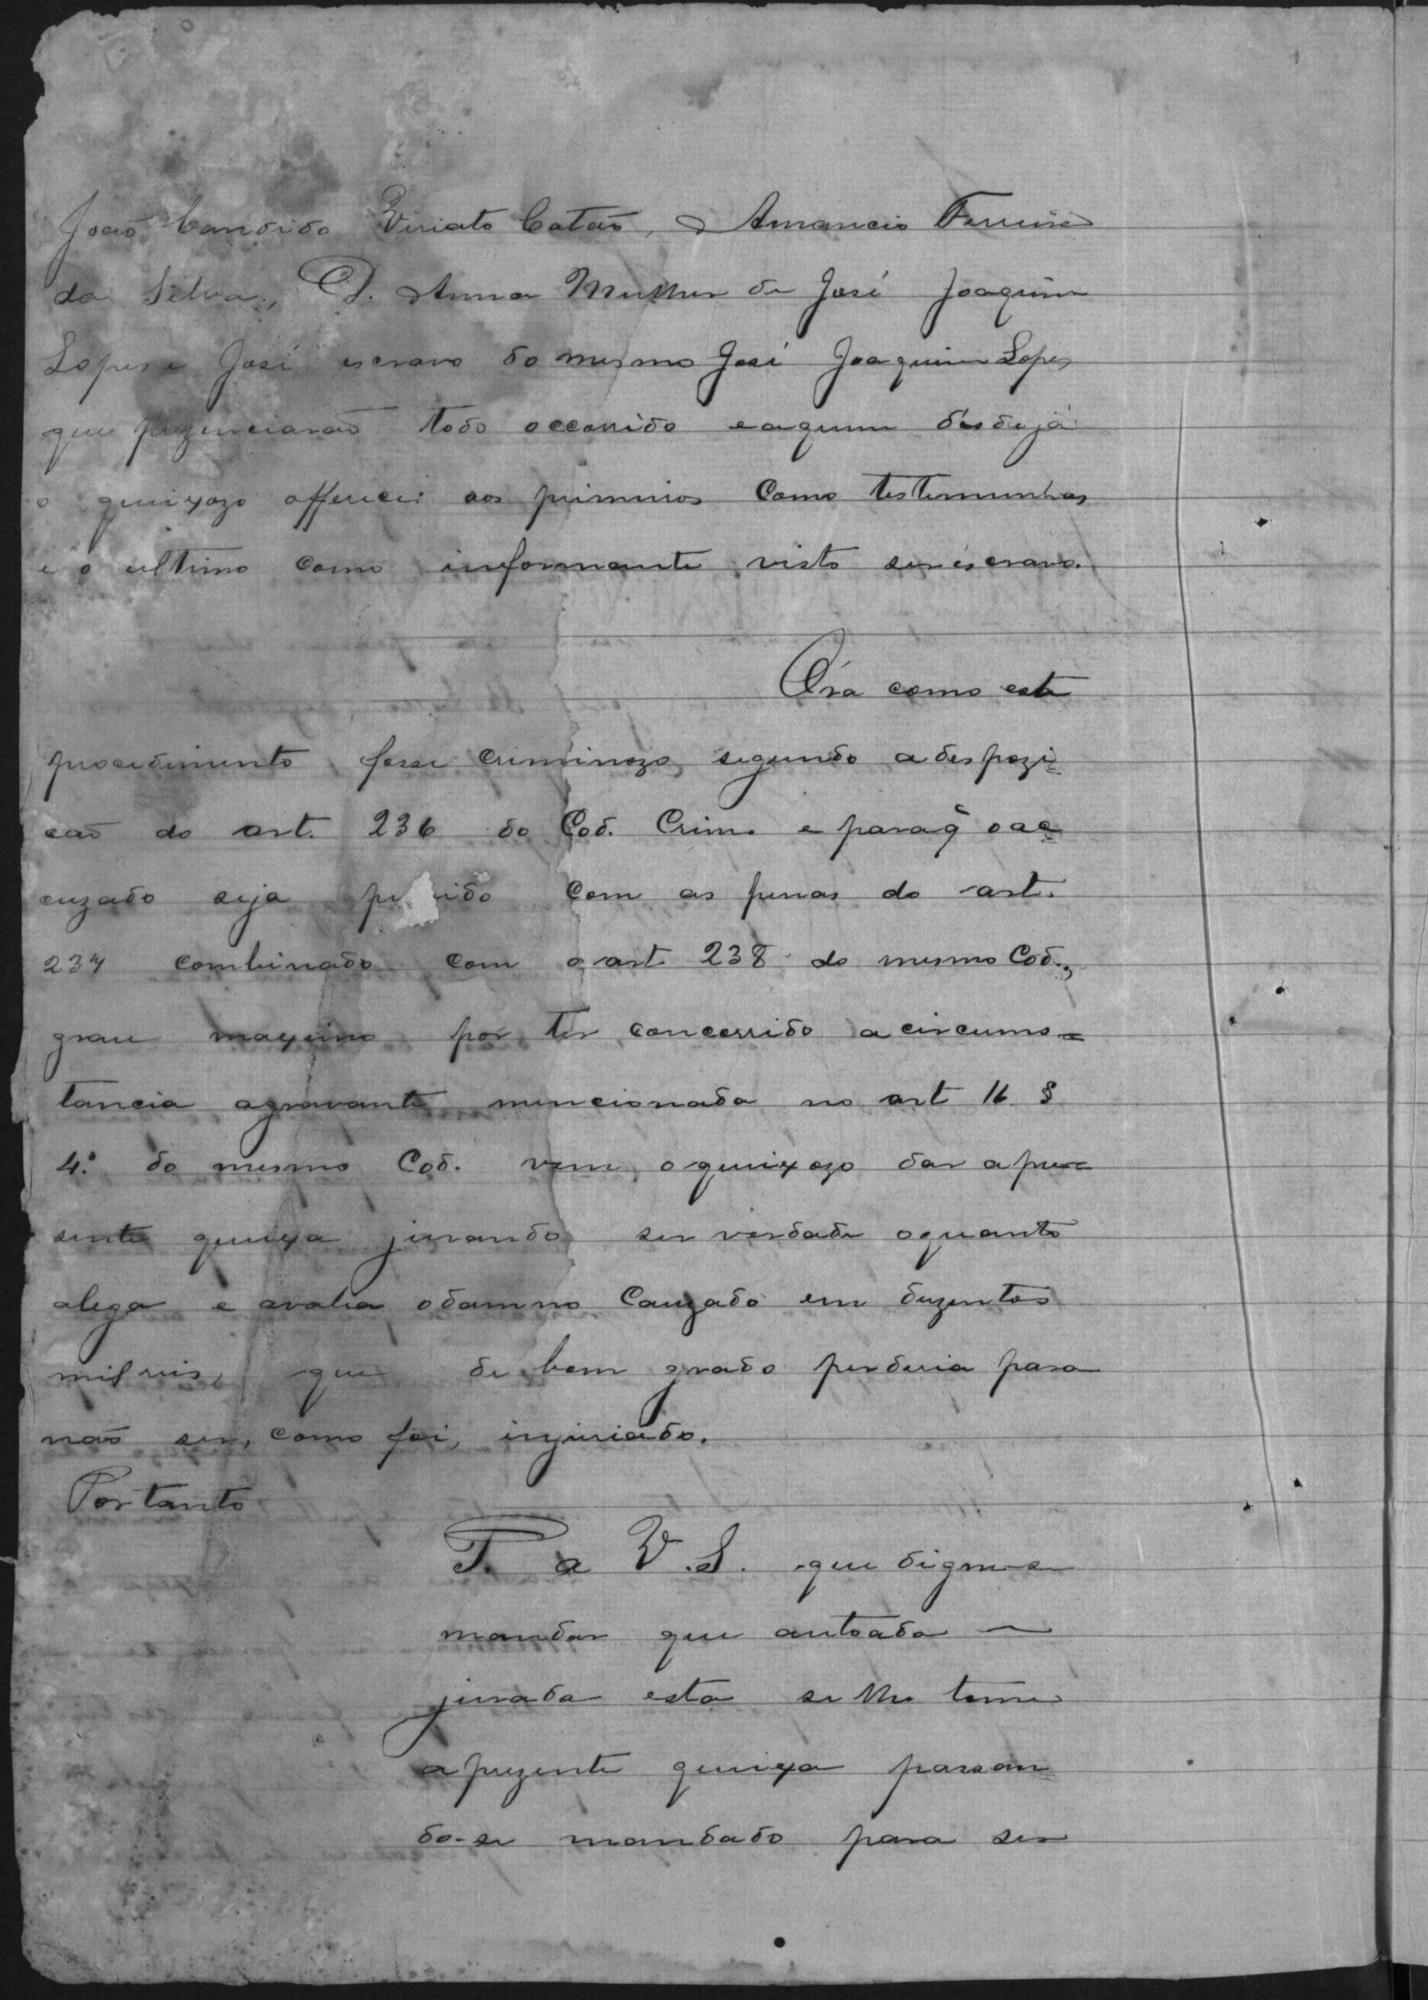 João Candido Viriato Catão, D Amancio Ferreira
da Silva, D. Anna Mulher de José Joaquim
Lopes e José escravo do mesmo José Joaquim Lopes
que prezenciarão todo occorrido e a quem desde já
o queixozo offerece: aos primeiros como testemunhas
e o ultimo como informante visto ser escravo.
Óra como este
procedimento fosse criminozo segundo a despozi=
cão do art. 236 do Cod. Crim. e para q̃ o ac=
cuzado seja pu ido com as penas do art.
237 combinado com o art 238 do mesmo Cod.,
grau maximo por ter concorrido a circums=
tancia agravante mencionada no art 16 §
4.º do mesmo Cod. vem o queixozo dar a pre=
sente queixa jurando ser verdade o quanto
alega e avalia o damno cauzado em duzentos
mil reis, que de bom grado perderia para
não ser, como foi, injuriado.
Portanto
P. a V. S. que digne-se
mandar que autoada e
jurada esta se lhe tome
a prezente queixa passan
do-se mandado para ser